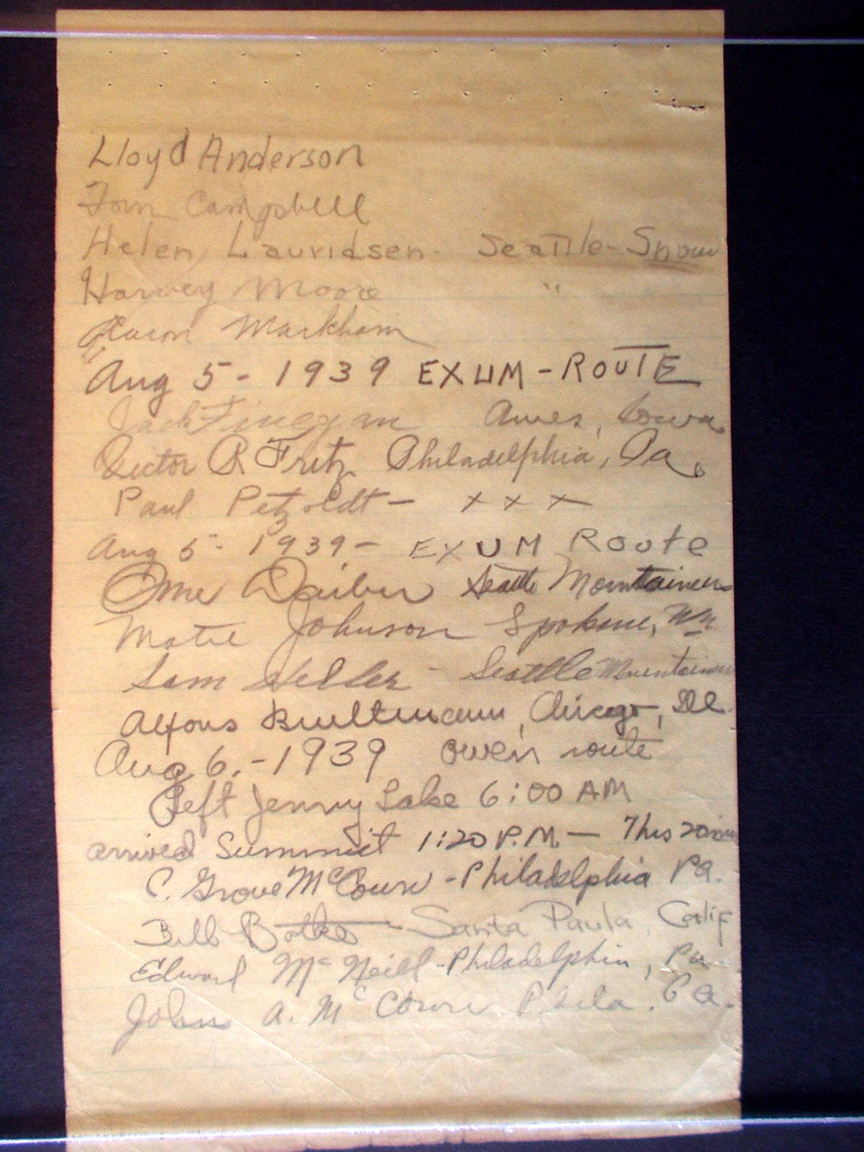 Lloyd Anderson
Tom Campbell
Helen Lauridsen - Seattle - Snow
Harvey Moore "
Aaron Markham
Aug 5 - 1939 EXUM - ROUTE
Jack Finegan Ames, Iowa
Victor R Fritz Philadelphia, Pa.
Paul Petzoldt - x x x
Aug 5 - 1939 - EXUM Route
Ome Daiber Seattle Mountaineers
Johnson Spokane, Wn
Sam Heller - Seattle Mountaineers
Alfons Bueltmann, Chicago, Ill.
Aug 6. - 1939 owen route
Left Jenny Lake 6:00 AM
arrived Summit 1:20 P.M. - This
C. Grove McCown - Philadelphia Pa.
Bill - Santa Paula, Calif
Edward McNeill - Philadelphia, Pa
John A. McCown Phila. Pa.